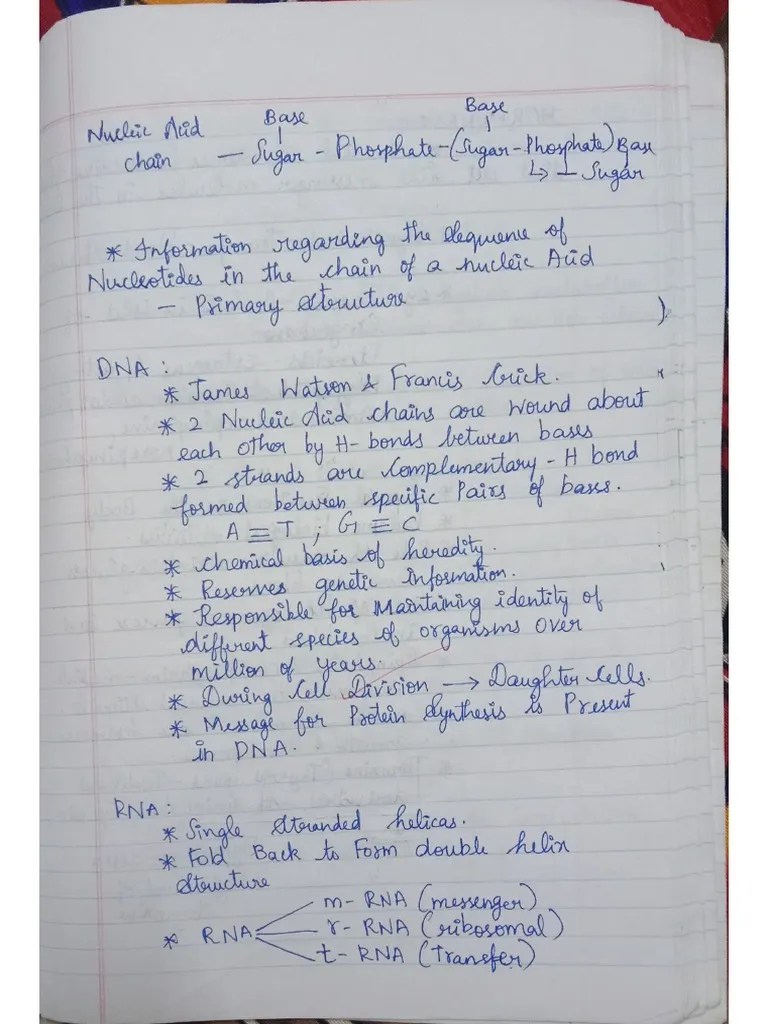 Base Base
Nucleic Acid
chain — Sugar - Phosphate - (Sugar - Phosphate) Base
↳ — Sugar
* Information regarding the sequence of
Nucleotides in the chain of a nucleic Acid
— Primary structure
DNA :
* James Watson & Francis Crick.
* 2 Nucleic Acid chains are wound about
each other by H- bonds between bases
* 2 strands are Complementary - H bond
formed between specific Pairs of bases.
A ≡ T ; G ≡ C
* chemical basis of heredity.
* Reserves genetic information.
* Responsible for Maintaining identity of
different species of organisms over
million of years.
* During Cell Division → Daughter Cells.
* Message for Protein Synthesis is Present
in DNA.
RNA :
* Single stranded helicas.
* Fold Back to Form double helix
structure
m- RNA (messenger)
* RNA r- RNA (ribosomal)
t- RNA (Transfer)